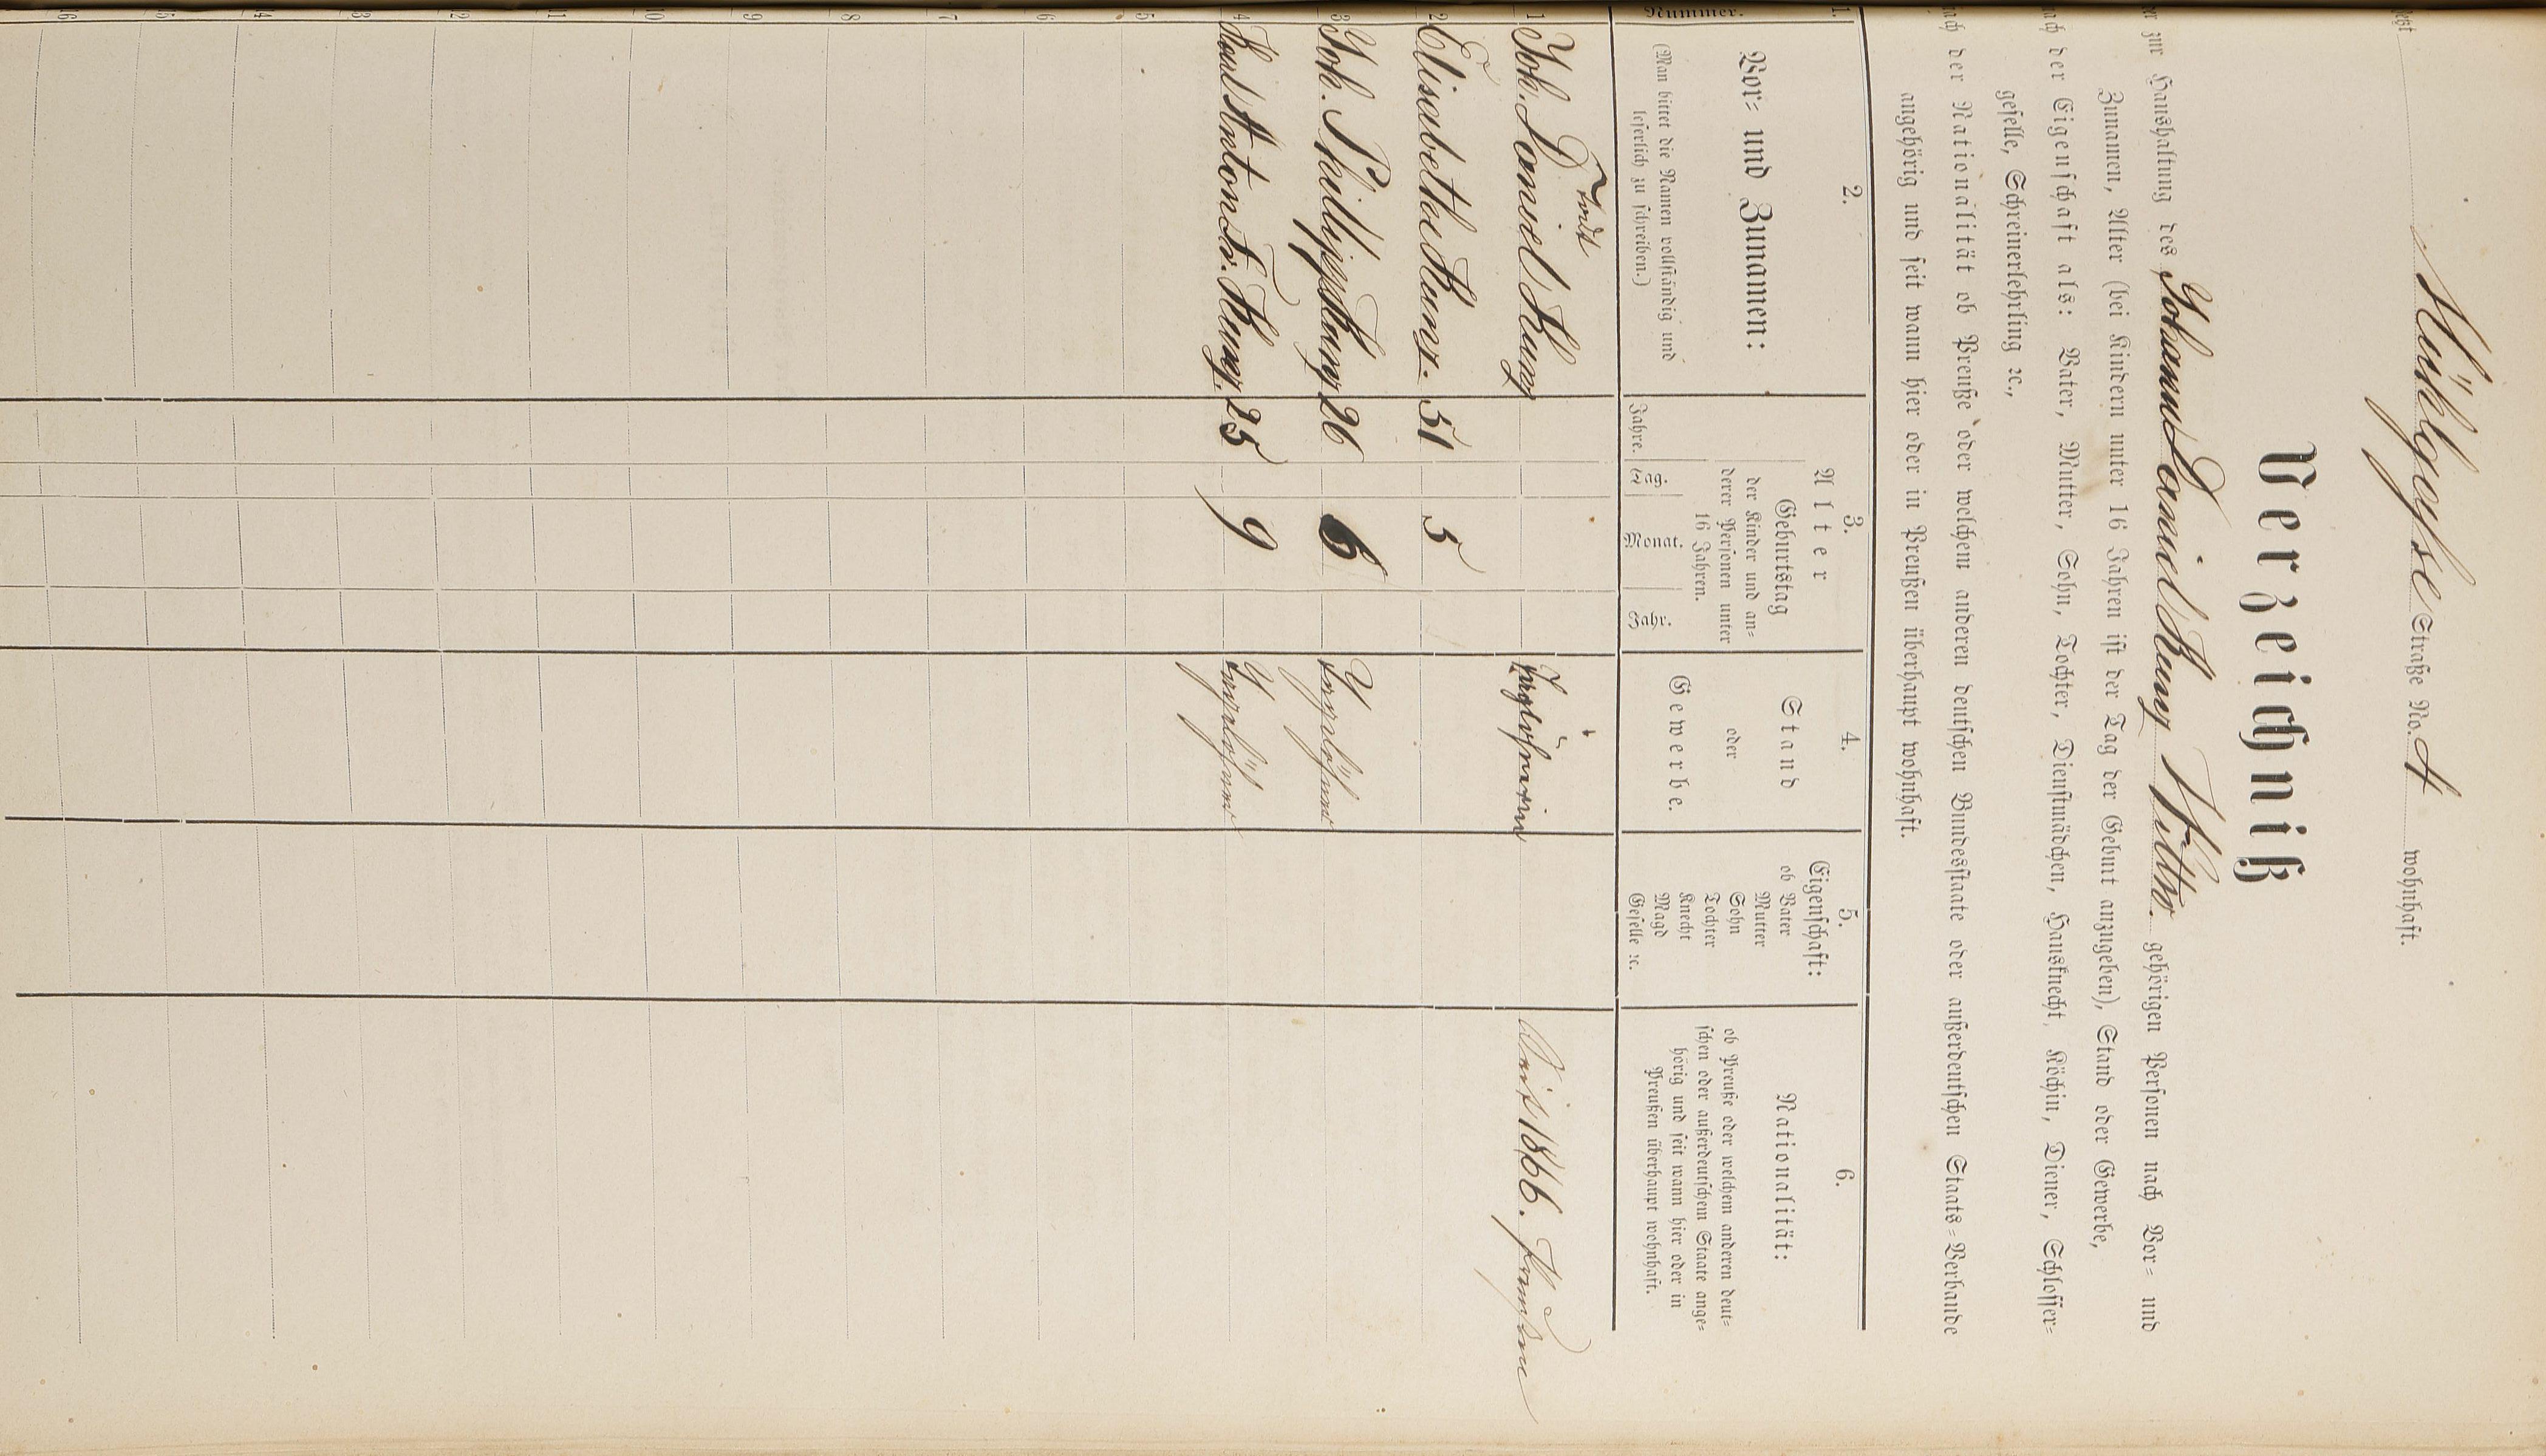 jetzt Mühlgasse Straße No. 4 wohnhaft.
Verzeichniß
der zur Haushaltung des Johann Daniel Kunz Wittw. gehörigen Personen nach Vor- und
Zunamen, Alter (bei Kindern unter 16 Jahren ist der Tag der Geburt anzugeben), Stand oder Gewerbe,
nach der Eigenschaft als: Vater, Mutter, Sohn, Tochter, Dienstmädchen, Hausknecht, Köchin, Diener, Schlosser-
geselle, Schreinerlehrling ꝛc.,
nach der Nationalität ob Preuße oder welchen anderen deutschen Bundesstaate oder außerdeutschen Staats-Verbande
angehörig und seit wann hier oder in Preußen überhaupt wohnhaft.
1. 2. 3. 4. 5. 6.
Nummer.
Vor- und Zunamen:
(Man bittet die Namen vollständig und
leserlich zu schreiben.)
Alter
Geburtstag
der Kinder und an-
derer Personen unter
16 Jahren.
Jahre. Tag. Monat. Jahr.
Stand
oder
Gewerbe.
Eigenschaft:
ob Vater
Mutter
Sohn
Tochter
Knecht
Magd
Geselle ꝛc.
Nationalität:
ob Preuße oder welchem anderen deut-
schen oder außerdeutschem Staate ange-
hörig und seit wann hier oder in
Preußen überhaupt wohnhaft.
Todt
1 Joh. Daniel Kunz Taglöhnerin Seit 1866. Preußen
2 Elisabetha Kunz. 51 5
3 Joh. Phillipp Kunz 26 6 Taglöhner
4 Karl Anton Fr. Kunz. 25 9 Taglöhner
5
6
7
8
9
10
11
12
13
14
15
16